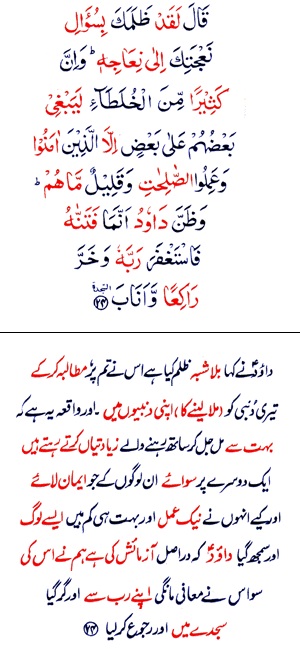 قَالَ لَقَدْ ظَلَمَكَ بِسُؤَالِ
نَعْجَتِكَ اِلٰى نِعَاجِهٖ ؕ وَاِنَّ
كَثِيْرًا مِّنَ الْخُلَطَآءِ لَيَبْغِيْ
بَعْضُهُمْ عَلٰى بَعْضٍ اِلَّا الَّذِيْنَ اٰمَنُوْا
وَعَمِلُوا الصّٰلِحٰتِ وَقَلِيْلٌ مَّا هُمْ ؕ
وَظَنَّ دَاوٗدُ اَنَّمَا فَتَنّٰهُ
فَاسْتَغْفَرَ رَبَّهٗ وَخَرَّ
رَاكِعًا وَّاَنَابَ السجدة ۲۴
داوٗدؑ نے کہا بلاشبہ ظلم کیا ہے اس نے تم پر مطالبہ کرکے
تیری دُنبی کو (ملا لینے کا) اپنی دنبیوں میں ۔ اور واقعہ یہ ہے کہ
بہت سے مل جل کر ساتھ رہنے والے زیادتیاں کرتے رہتے ہیں
ایک دوسرے پر سوائے ان لوگوں کے جو ایمان لائے
اور کیے انہوں نے نیک عمل اور بہت ہی کم ہیں ایسے لوگ
اور سمجھ گیا داوٗدؑ کہ دراصل آزمائش کی ہے ہم نے اس کی
سو اس نے معافی مانگی اپنے رب سے اور گر گیا
سجدے میں اور رجوع کر لیا ۲۴